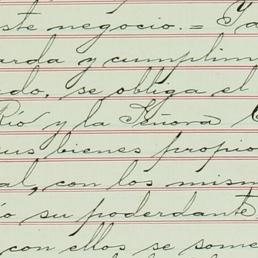 este negocio. = Y a
arda y cumplim
do, se obliga el
Río y la Señora
us bienes propio
al, con los mism
o su poderdante
con ellos se some